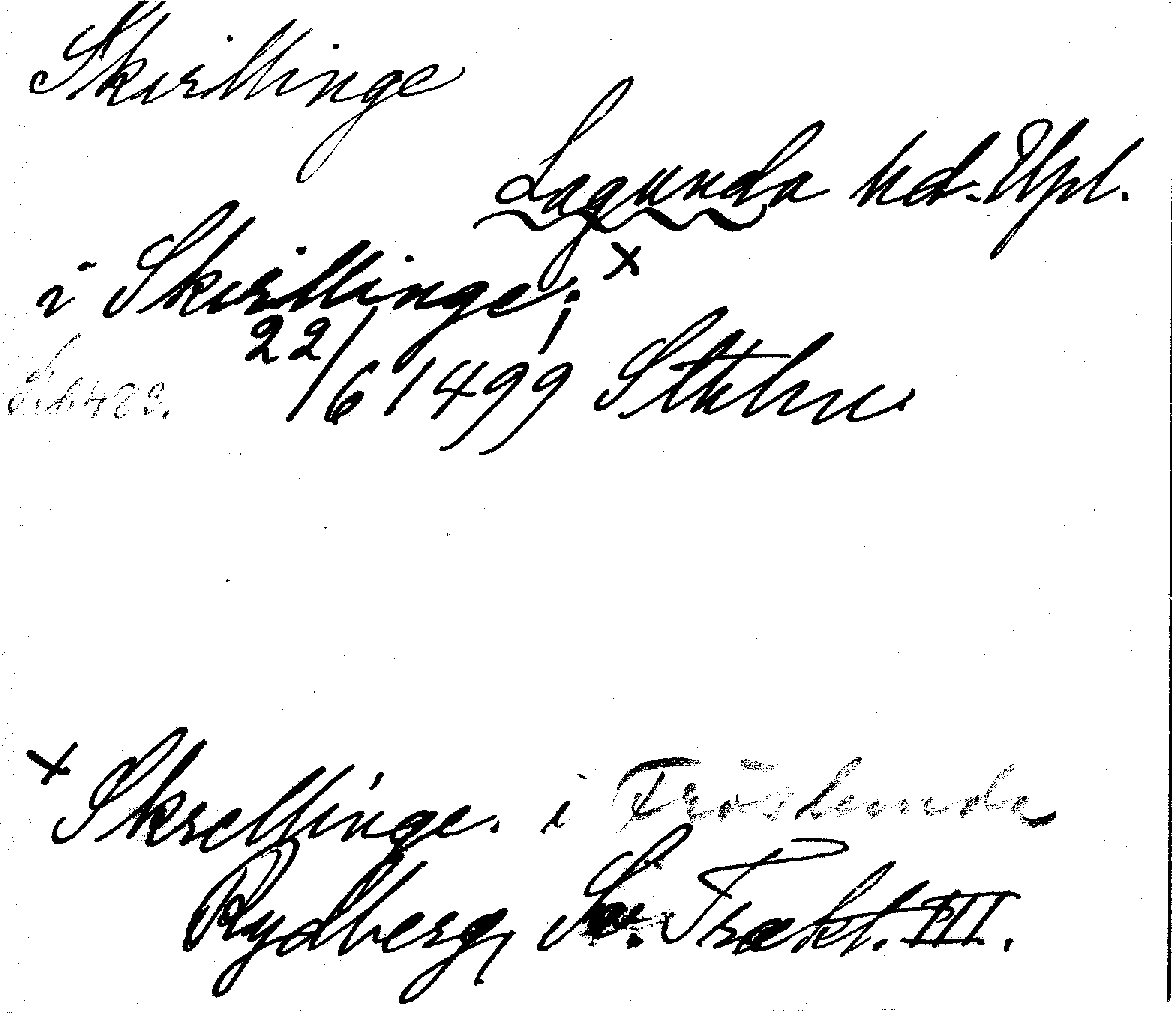 Skirllinge
Lagunda hd. Upl.
i Skirllinge; x
22/6 1499 Sthlm
x Skrellinge. i FrösLunda
Rydberg, Sv. Trakt. III.